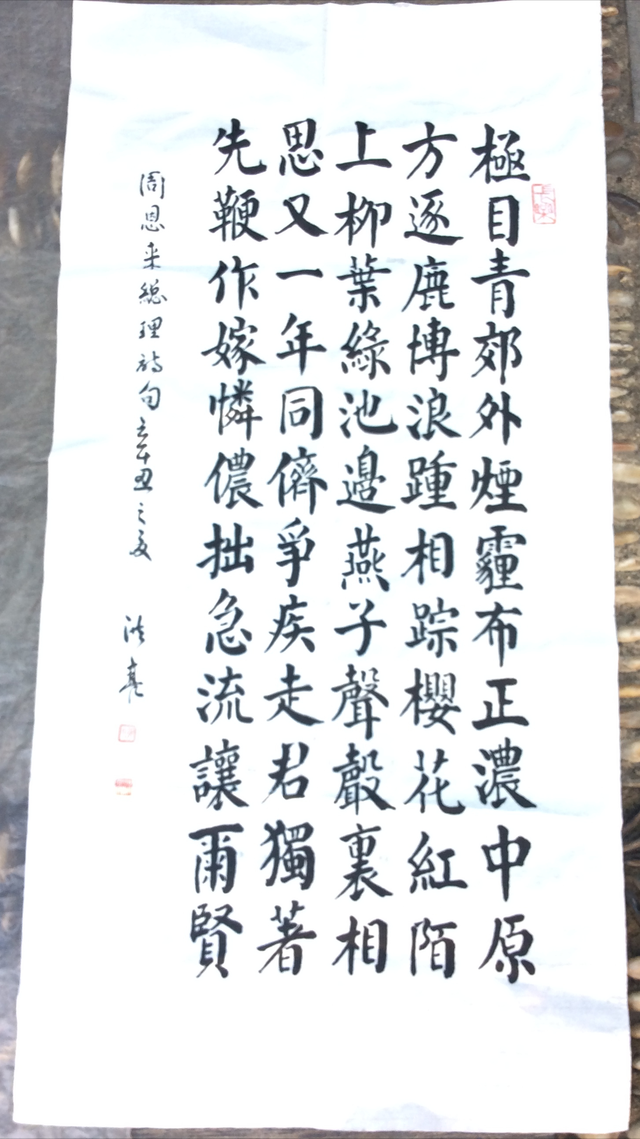 極目青郊外煙霾布正濃中原
方逐鹿博浪踵相踪櫻花紅陌
上柳葉綠池邊燕子聲聲裏相
思又一年同儕爭疾走君獨著
先鞭作嫁憐儂拙急流讓爾賢
周恩来總理詩句辛丑之夏 洪亮